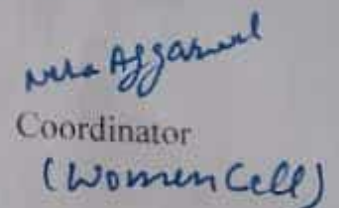 Neha Aggarwal
Coordinator
(Women Cell)